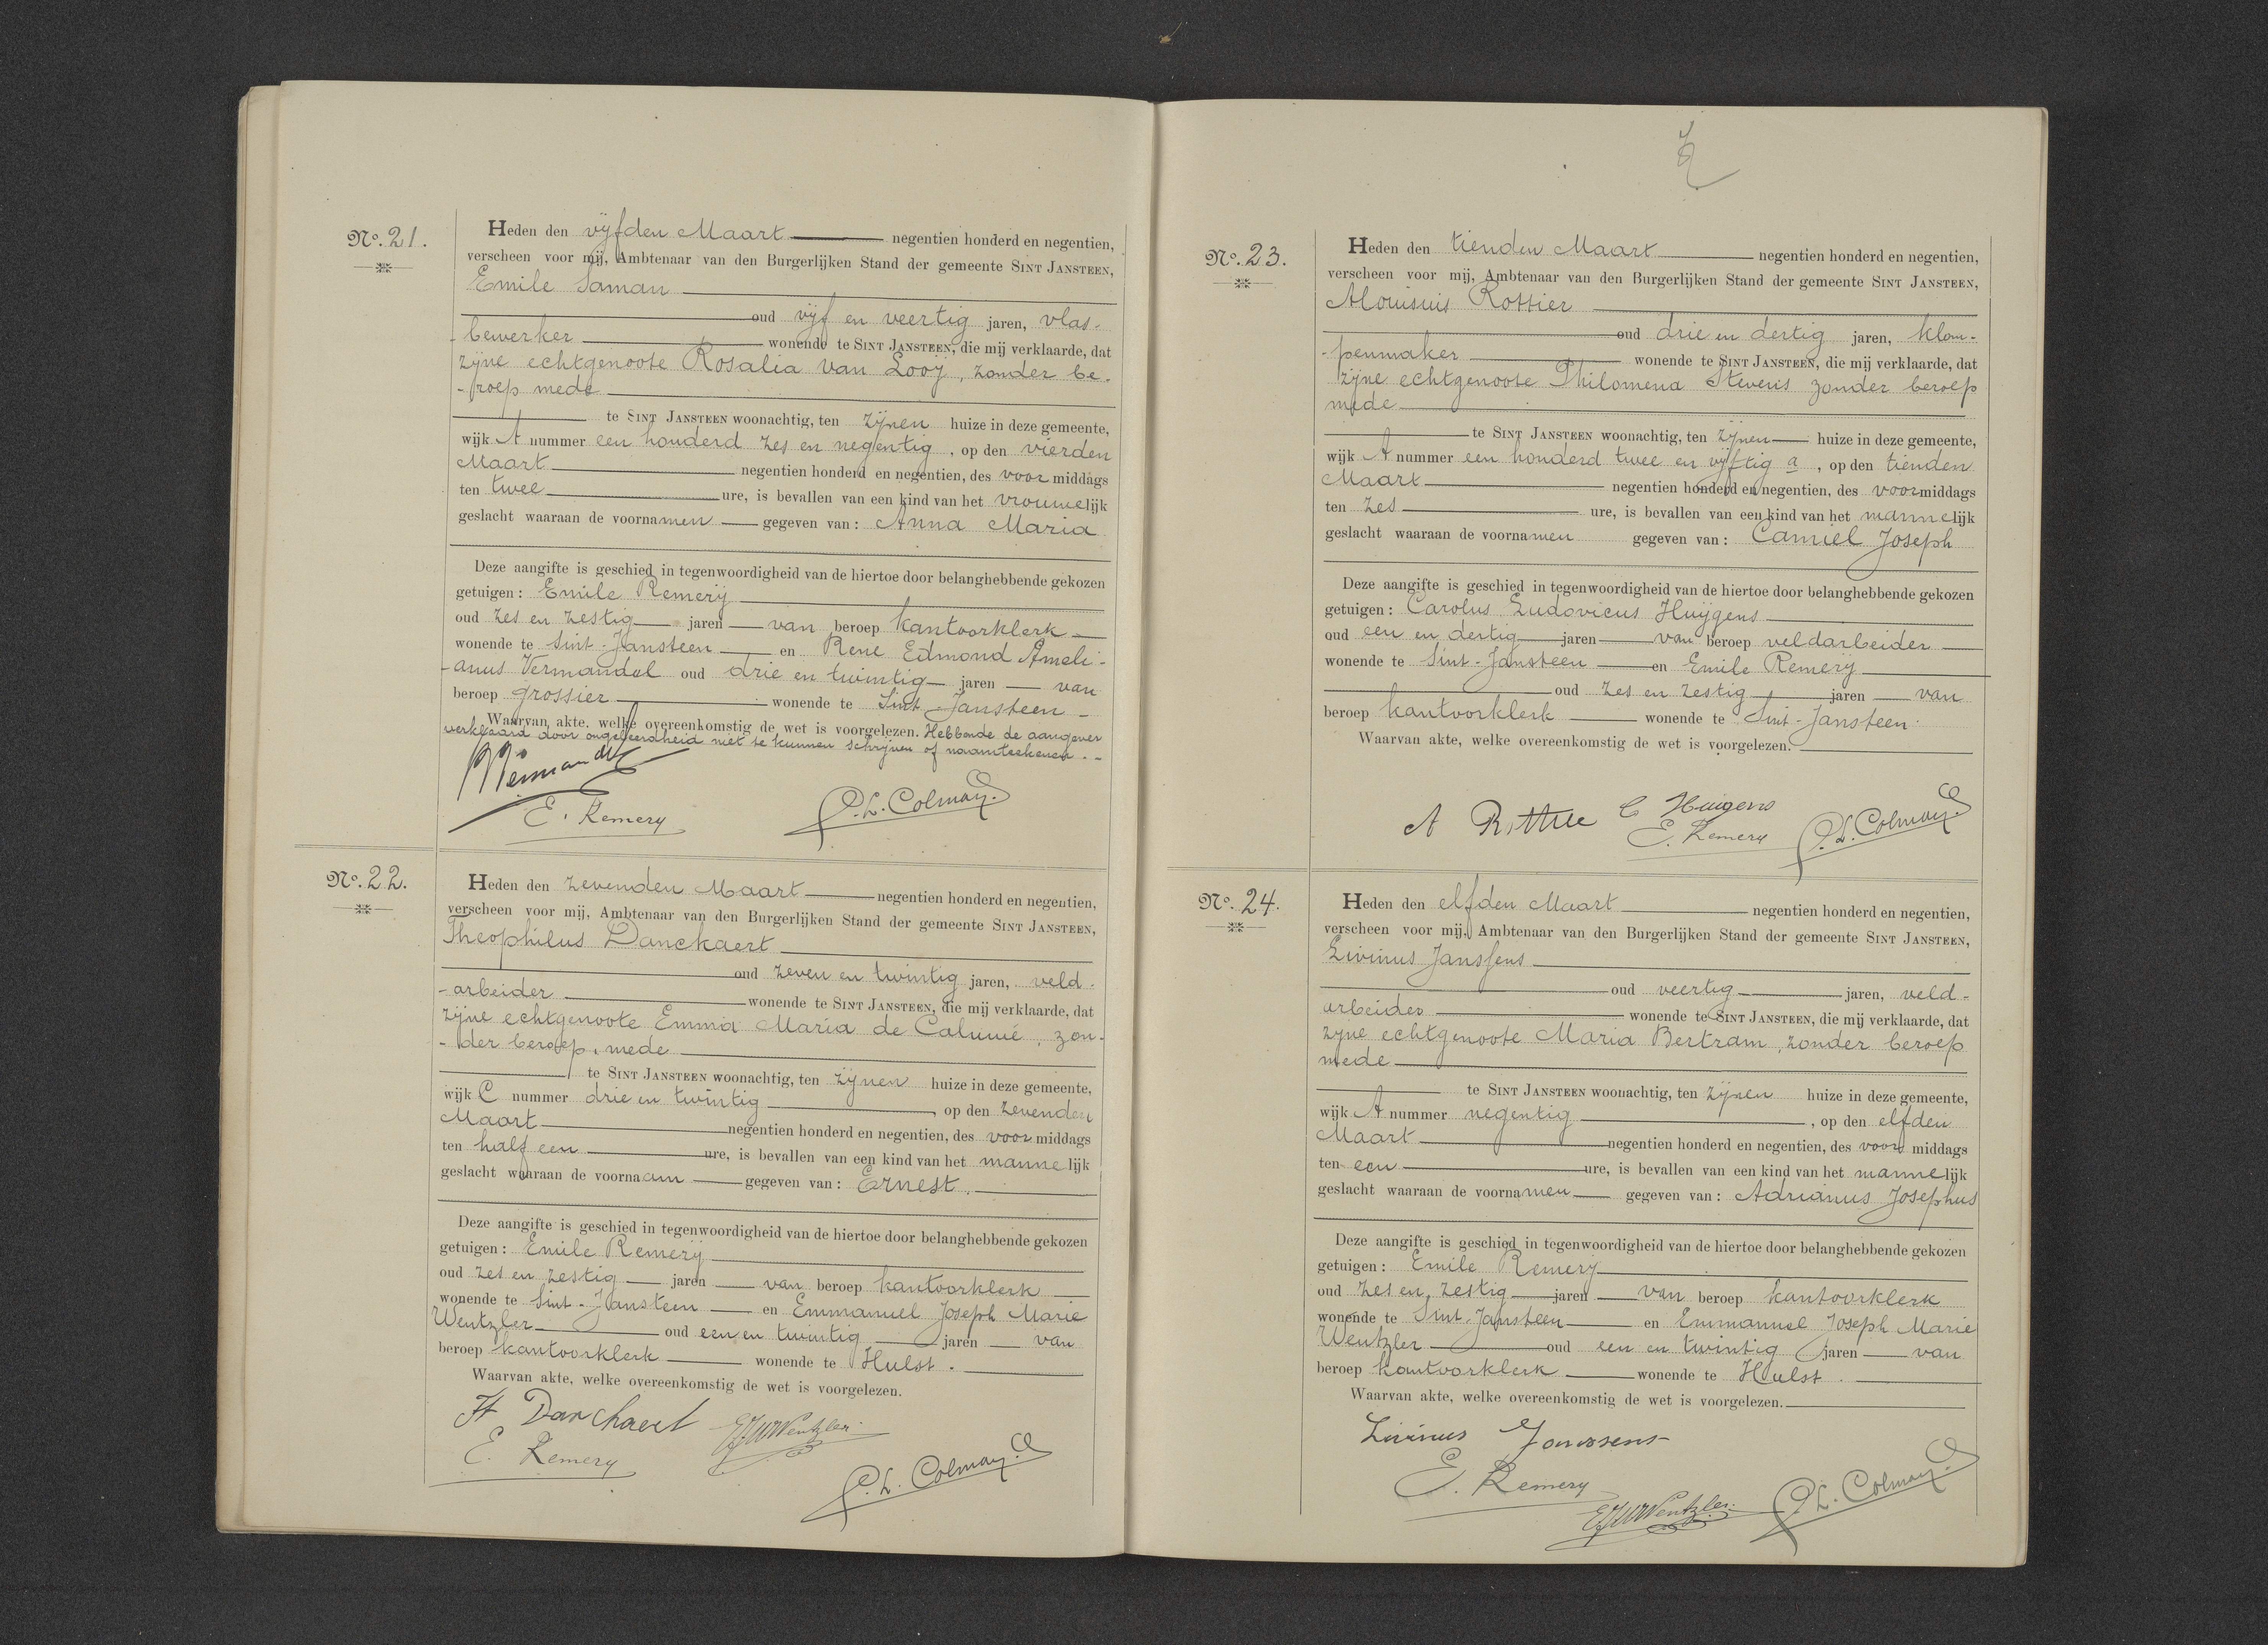 No. 21.
Heden den vijfden Maart negentien honderd en negentien,
verscheen voor mij, Ambtenaar van den Burgerlijken Stand der gemeente SINT JANSTEEN,
Emile Saman
oud vijf en veertig jaren, vlas-
bewerker wonende te SINT JANSTEEN, die mij verklaarde, dat
zijne echtgenoote Rosalia van Looy, zonder be-
-roep mede
te SINT JANSTEEN woonachtig, ten zijnen huize in deze gemeente,
wijk A nummer een honderd zes en negentig, op den vierden
Maart negentien honderd en negentien, des voormiddags
ten twee ure, is bevallen van een kind van het vrouwelijk
geslacht waaraan de voornamen gegeven van: Anna Maria
Deze aangifte is geschied in tegenwoordigheid van de hiertoe door belanghebbende gekozen
getuigen: Emile Remerij
oud zes en zestig jaren van beroep kantoorklerk
wonende te Sint-Jansteen en Rene Edmond Ameli-
-anus Vermandel oud drie en twintig jaren van
beroep grossier wonende te Sint Jansteen
Waarvan akte, welke overeenkomstig de wet is voorgelezen. Hebbende de aangever
verklaard door ongeleerdheid niet te kunnen schrijven of naamteekenen.
E. Remery
P.L. Colman
No. 22.
Heden den zevenden Maart negentien honderd en negentien,
verscheen voor mij, Ambtenaar van den Burgerlijken Stand der gemeente SINT JANSTEEN,
Theophilus Danckaert
oud zeven en twintig jaren, veld-
-arbeider wonende te SINT JANSTEEN, die mij verklaarde, dat
zijne echtgenoote Emma Maria de Caluwé, zon-
-der beroep, mede
te SINT JANSTEEN woonachtig, ten zijnen huize in deze gemeente,
wijk C nummer drie en twintig, op den zevenden
Maart negentien honderd en negentien, des voormiddags
ten half een ure, is bevallen van een kind van het mannelijk
geslacht waaraan de voornaam gegeven van: Ernest.
Deze aangifte is geschied in tegenwoordigheid van de hiertoe door belanghebbende gekozen
getuigen: Emile Remerij
oud zes en zestig jaren van beroep kantoorklerk
wonende te Sint-Jansteen en Emmanuel Joseph Marie
Wentzler oud een en twintig jaren van
beroep kantoorklerk wonende te Hulst.
Waarvan akte, welke overeenkomstig de wet is voorgelezen.
Danckaert EJMWentzler
E. Remery
P.L. Colman
No. 23.
Heden den tienden Maart negentien honderd en negentien,
verscheen voor mij, Ambtenaar van den Burgerlijken Stand der gemeente SINT JANSTEEN,
Alouisuis Rottier
oud drie en dertig jaren, klom-
-penmaker wonende te SINT JANSTEEN, die mij verklaarde, dat
zijne echtgenoote Philomena Stevens zonder beroep
mede
te SINT JANSTEEN woonachtig, ten zijnen huize in deze gemeente,
wijk A nummer een honderd twee en vijftig a, op den tienden
Maart negentien honderd en negentien, des voormiddags
ten zes ure, is bevallen van een kind van het mannelijk
geslacht waaraan de voornamen gegeven van: Camiel Joseph
Deze aangifte is geschied in tegenwoordigheid van de hiertoe door belanghebbende gekozen
getuigen: Carolus Ludovicus Huijgens
oud een en dertig jaren van beroep veldarbeider
wonende te Sint-Jansteen en Emile Remerij
oud zes en zestig jaren van
beroep kantoorklerk wonende te Sint-Jansteen.
Waarvan akte, welke overeenkomstig de wet is voorgelezen.
A C Huigens
E. Remery P.L. Colman
No. 24.
Heden den elfden Maart negentien honderd en negentien,
verscheen voor mij, Ambtenaar van den Burgerlijken Stand der gemeente SINT JANSTEEN,
Livinus Janssens
oud veertig jaren, veld-
arbeider wonende te SINT JANSTEEN, die mij verklaarde, dat
zijne echtgenoote Maria Bertram, zonder beroep
mede
te SINT JANSTEEN woonachtig, ten zijnen huize in deze gemeente,
wijk A nummer negentig, op den elfden
Maart negentien honderd en negentien, des voormiddags
ten een ure, is bevallen van een kind van het mannelijk
geslacht waaraan de voornamen gegeven van: Adrianus Josephus
Deze aangifte is geschied in tegenwoordigheid van de hiertoe door belanghebbende gekozen
getuigen: Emile Remerij
oud zes en zestig jaren van beroep kantoorklerk
wonende te Sint-Jansteen en Emmanuel Joseph Marie
Wentzler oud een en twintig jaren van
beroep kantoorklerk wonende te Hulst.
Waarvan akte, welke overeenkomstig de wet is voorgelezen.
Livinus Janssens
E. Remery
EJMWentzler P.L. Colman